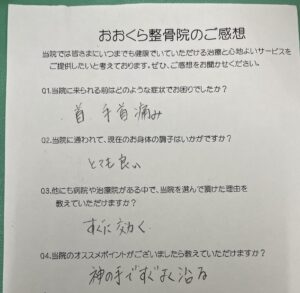 おおくら整骨院のご感想
当院では皆さまにいつまでも健康でいていただける治療と心地よいサービスを
ご提供したいと考えております。ぜひ、ご感想をお聞かせください。
Q1.当院に来られる前はどのような症状でお困りでしたか?
首 手首痛み
Q2.当院に通われて、現在のお身体の調子はいかがですか?
とても良い
Q3.他にも病院や治療院がある中で、当院を選んで頂けた理由を
教えていただけますか?
すぐに効く
Q4.当院のオススメポイントがございましたら教えていただけますか?
神の手ですぐよく治る